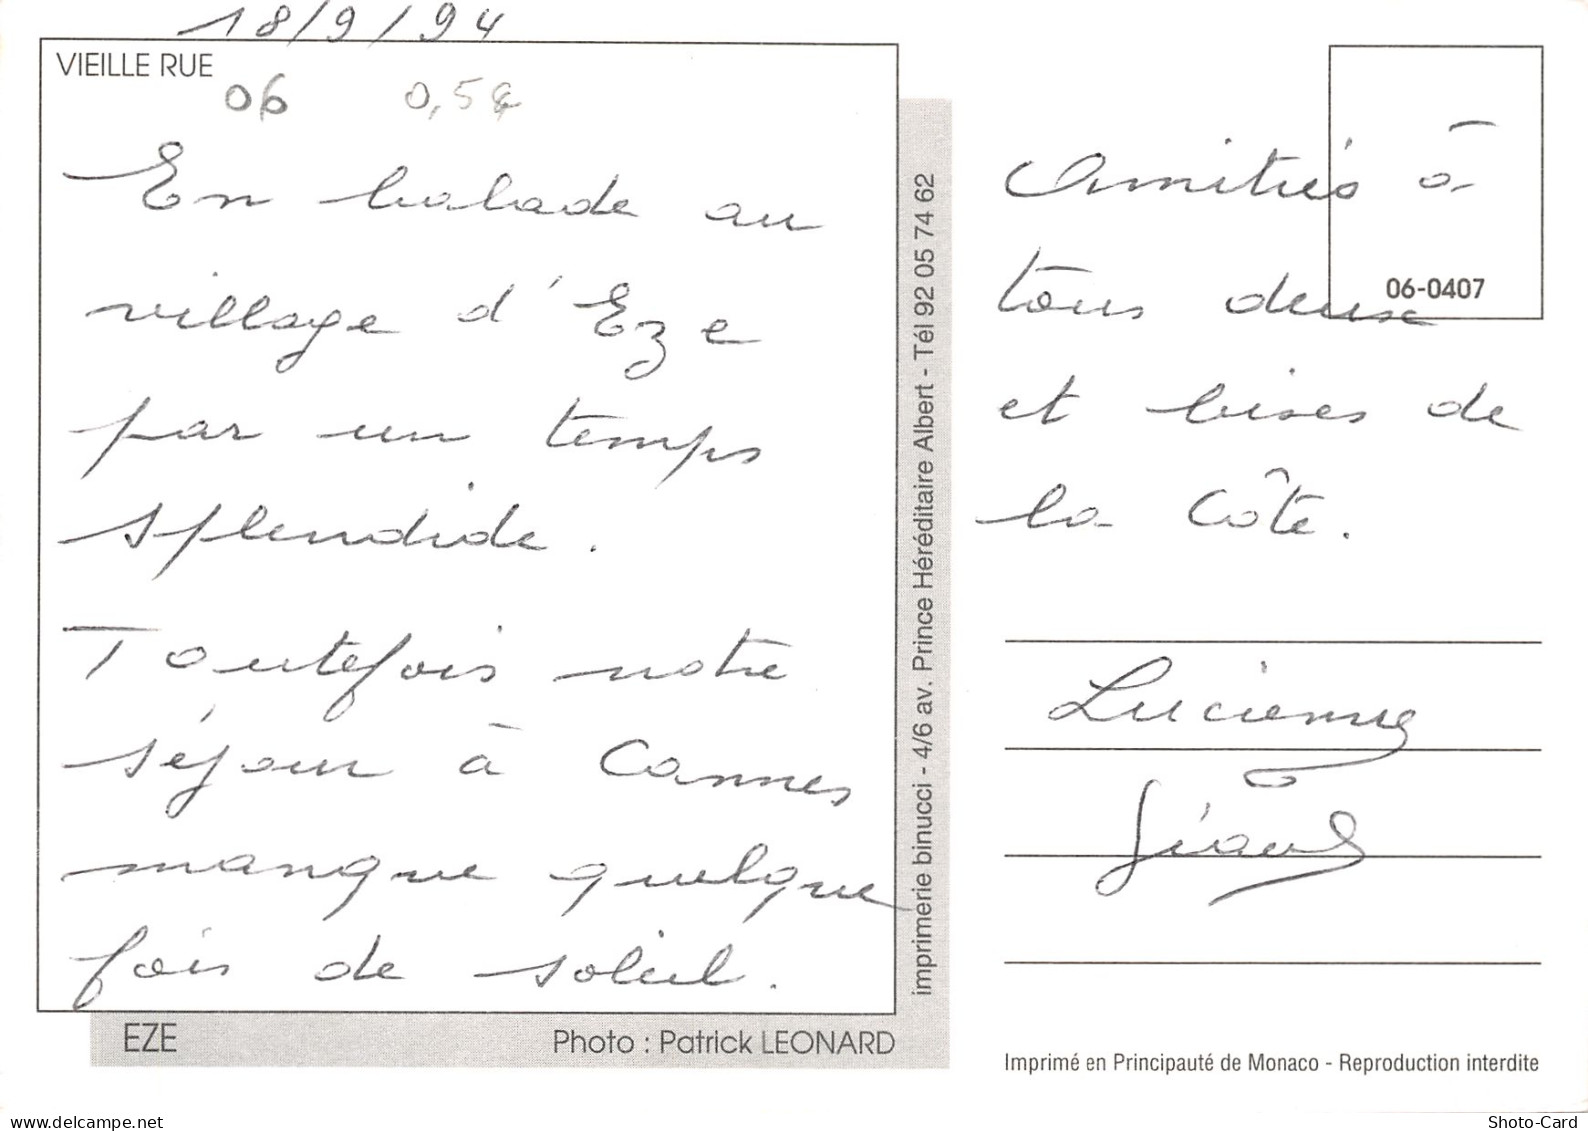 18/9/94
VIEILLE RUE
06 0,5€
En balade au
village d'Eze
par un temps
splendide.
Toutefois notre
séjour à Cannes
manque quelque
fois de soleil.
EZE
Photo : Patrick LEONARD
imprimerie binucci - 4/6 av. Prince Héréditaire Albert - Tél 92 05 74 62
06-0407
Amitiés à
tous deux
et bises de
la Côte.
Lucienne
Imprimé en Principauté de Monaco - Reproduction interdite
delcampe.net
Shoto-Card